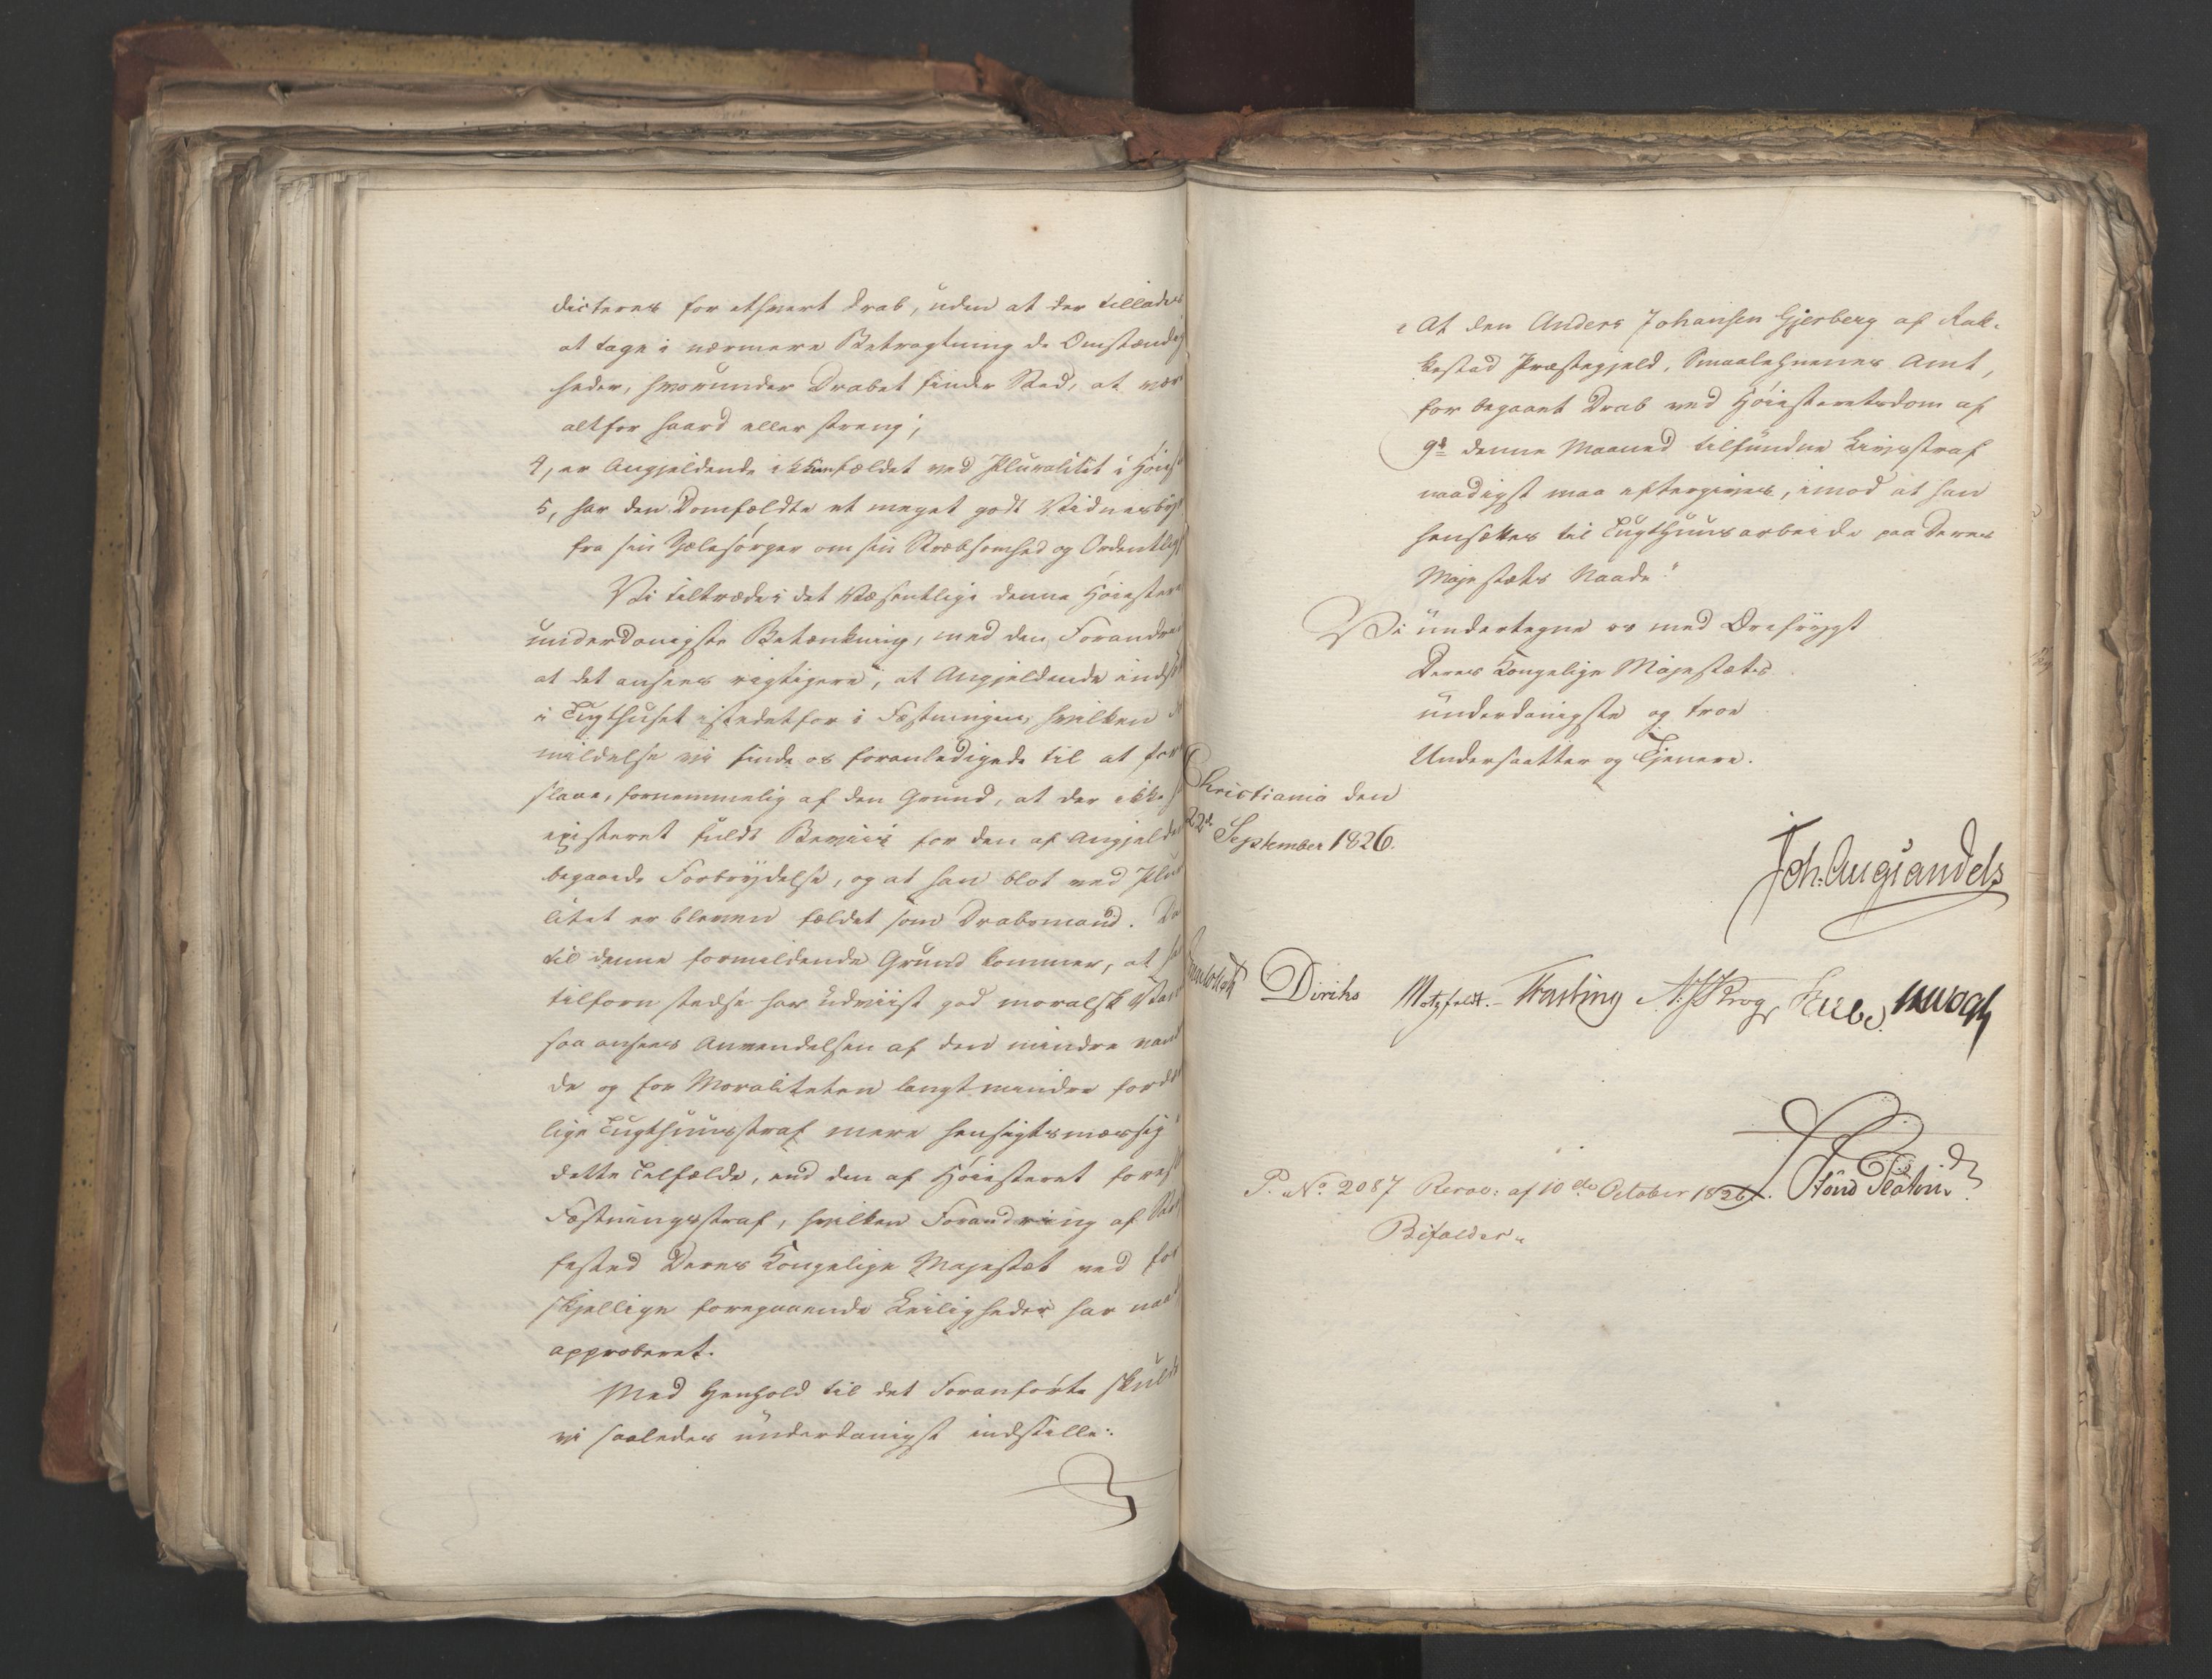 dicteres for ethvert Drab, uden at der tillades
at tage i nærmere Betragtning de Omstændig
heder, hvorunder Drabet finder Sted, at være
altfor haard eller streng;
4, er Angjeldende ikkun fældet ved Pluralitet i Høiest
5, har den Domfældte et meget godt Vidnesbyrd
fra sin Sjelesørger om sin Stræbsomhed og Ordentlig
Vi tiltræde i det Væsentlige denne Høiesteret
underdanigste Betænkning, med den Forandring
at det ansees rigtigere, at Angjeldende indsæt
i Tugthuset istedetfor i Fæstningen, hvilken
mildelse vi finde os foranledigede til at fore
slaae, fornemmelig af den Grund, at der ikke
existeret fuldt Beviis for den af Angjelden
begaaede Forbrydelse, og at han blot ved Plura
litet er bleven fældet som Drabsmand. Da
til denne formildende Grund kommer, at han
tilforn stedse har udviist god moralsk Vandel
saa ansees Anvendelsen af den mindre vanæ
de og for Moraliteten langt mindre fordær
lige Tugthuusstraf mere hensigtsmæssig i
dette Tilfælde, end den af Høiesteret foresl
Fæstningsstraf, hvilken Forandring af Straf
fested Deres Kongelige Majestæt ved for
skjellige foregaaende Leiligheder har naad
approberet.
Med Henhold til det Foranførte skulde
vi saaledes underdanigst indstille:
"At den Anders Johansen Gjerberg af Rak-
kestad Præstegjeld, Smaalehnenes Amt,
for begaaet Drab ved Høiesteretsdom af
9de denne Maaned tilfundne Livsstraf
naadigst maa eftergives, imod at han
hensættes til Tugthuusarbeide paa Deres
Majestæts Naade."
Vi undertegne os med Ærefrygt
Deres Kongelige Majestæts
underdanigste og troe
Undersaatter og Tjenere.
Christiania den
22de September 1826.
Joh. Aug. Sandels
Diriks Motzfeldt. Fasting A. S. Krog
P. No. 2087 Resol: af 10de October 1826.
Bifaldes.